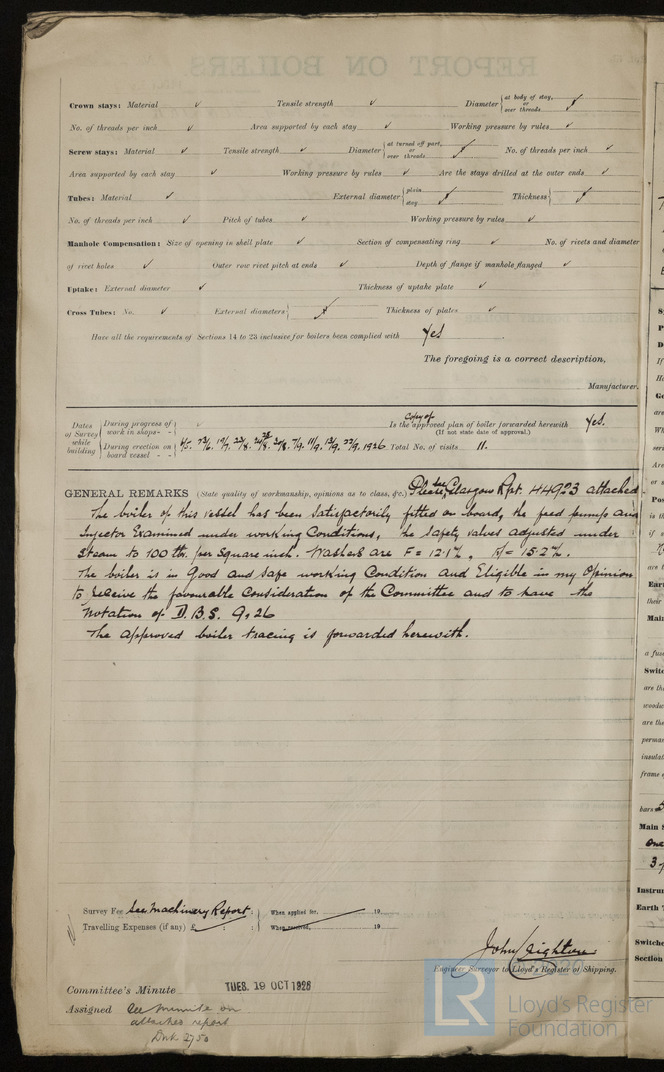 REPORT ON BOILERS.
Crown stays: Material ✓ Tensile strength ✓ Diameter { at body of stay, or over threads ✓
No. of threads per inch ✓ Area supported by each stay ✓ Working pressure by rules ✓
Screw stays: Material ✓ Tensile strength ✓ Diameter { at turned off part, or over threads ✓ No. of threads per inch ✓
Area supported by each stay ✓ Working pressure by rules ✓ Are the stays drilled at the outer ends ✓
Tubes: Material ✓ External diameter { plain stay ✓ Thickness { ✓
No. of threads per inch ✓ Pitch of tubes ✓ Working pressure by rules ✓
Manhole Compensation: Size of opening in shell plate ✓ Section of compensating ring ✓ No. of rivets and diameter
of rivet holes ✓ Outer row rivet pitch at ends ✓ Depth of flange if manhole flanged ✓
Uptake: External diameter ✓ Thickness of uptake plate ✓
Cross Tubes: No. ✓ External diameters { ✓ Thickness of plates ✓
Have all the requirements of Sections 14 to 23 inclusive for boilers been complied with Yes
The foregoing is a correct description,
Manufacturer.
Dates of Survey while building { During progress of work in shops - - ✓ Is the Copy of approved plan of boiler forwarded herewith Yes.
(If not state date of approval.)
During erection on board vessel - - 4/5. 23/6. 19/7. 23/8. 30/8. 7/9. 11/9. 13/9. 22/9. 1926 Total No. of visits 11.
GENERAL REMARKS (State quality of workmanship, opinions as to class, &c.) Please see Glasgow Rpt. 44923 attached
The boiler of this vessel has been satisfactorily fitted on board, the feed pump and
Injector Examined under working Conditions, the safety valves adjusted under
steam to 100 lbs. per square inch. Washers are F = 12.1%, A = 15.2%.
The boiler is in Good and safe working Condition and Eligible in my Opinion
to receive the favourable Consideration of the Committee and to have the
Notation of D.B.S. 9,26
The approved boiler tracing is forwarded herewith.
Survey Fee See Machinery Report : When applied for, 19
Travelling Expenses (if any) £ : : When received, 19
John Leighton
Engineer Surveyor to Lloyd's Register of Shipping.
Committee's Minute TUES. 19 OCT 1926
Assigned See minute on
attached report
LR Lloyd's Register
Foundation